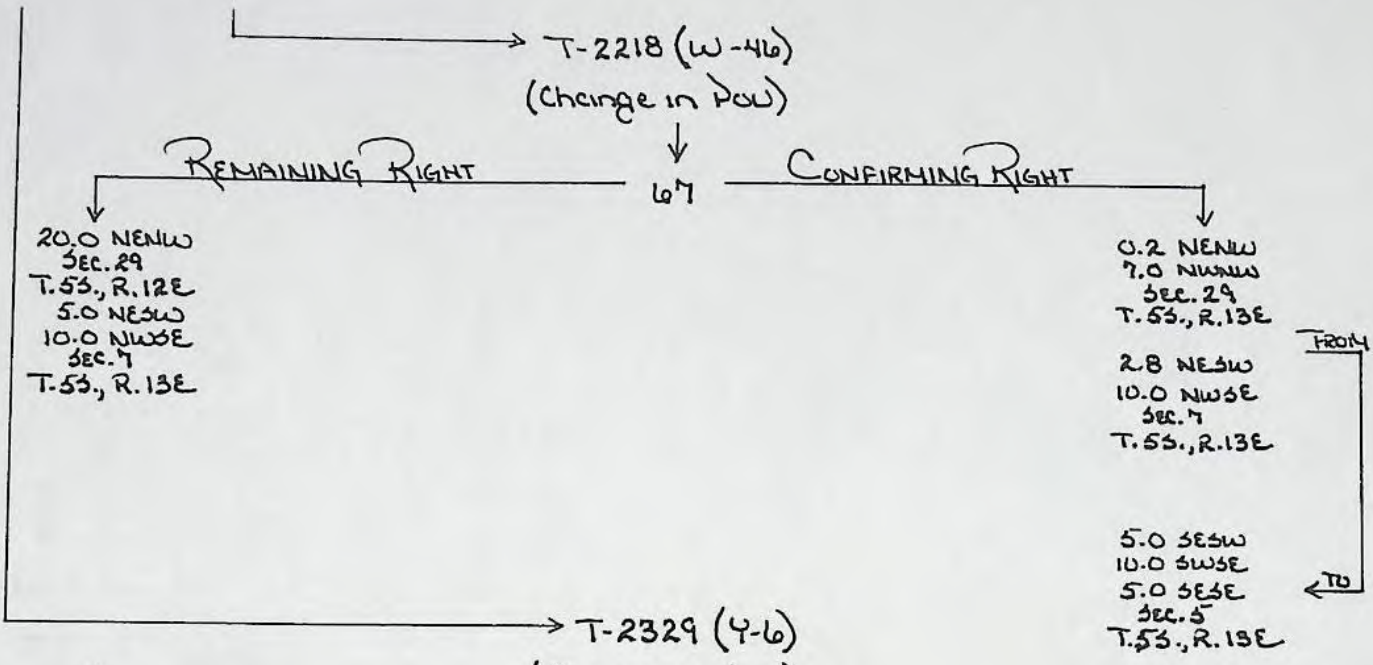 T-2218 (W-46)
(Change in POU)
REMAINING RIGHT
67
CONFIRMING RIGHT
20.0 NENW
SEC. 29
T.5S., R.12E
5.0 NESW
10.0 NWSE
SEC. 7
T.5S., R.13E
0.2 NENW
7.0 NWNW
SEC. 29
T.5S., R.13E
FROM
2.8 NESW
10.0 NWSE
SEC. 7
T.5S., R.13E
5.0 SESW
10.0 SWSE
5.0 SESE
SEC. 5
T.5S., R.13E
TO
T-2329 (Y-6)